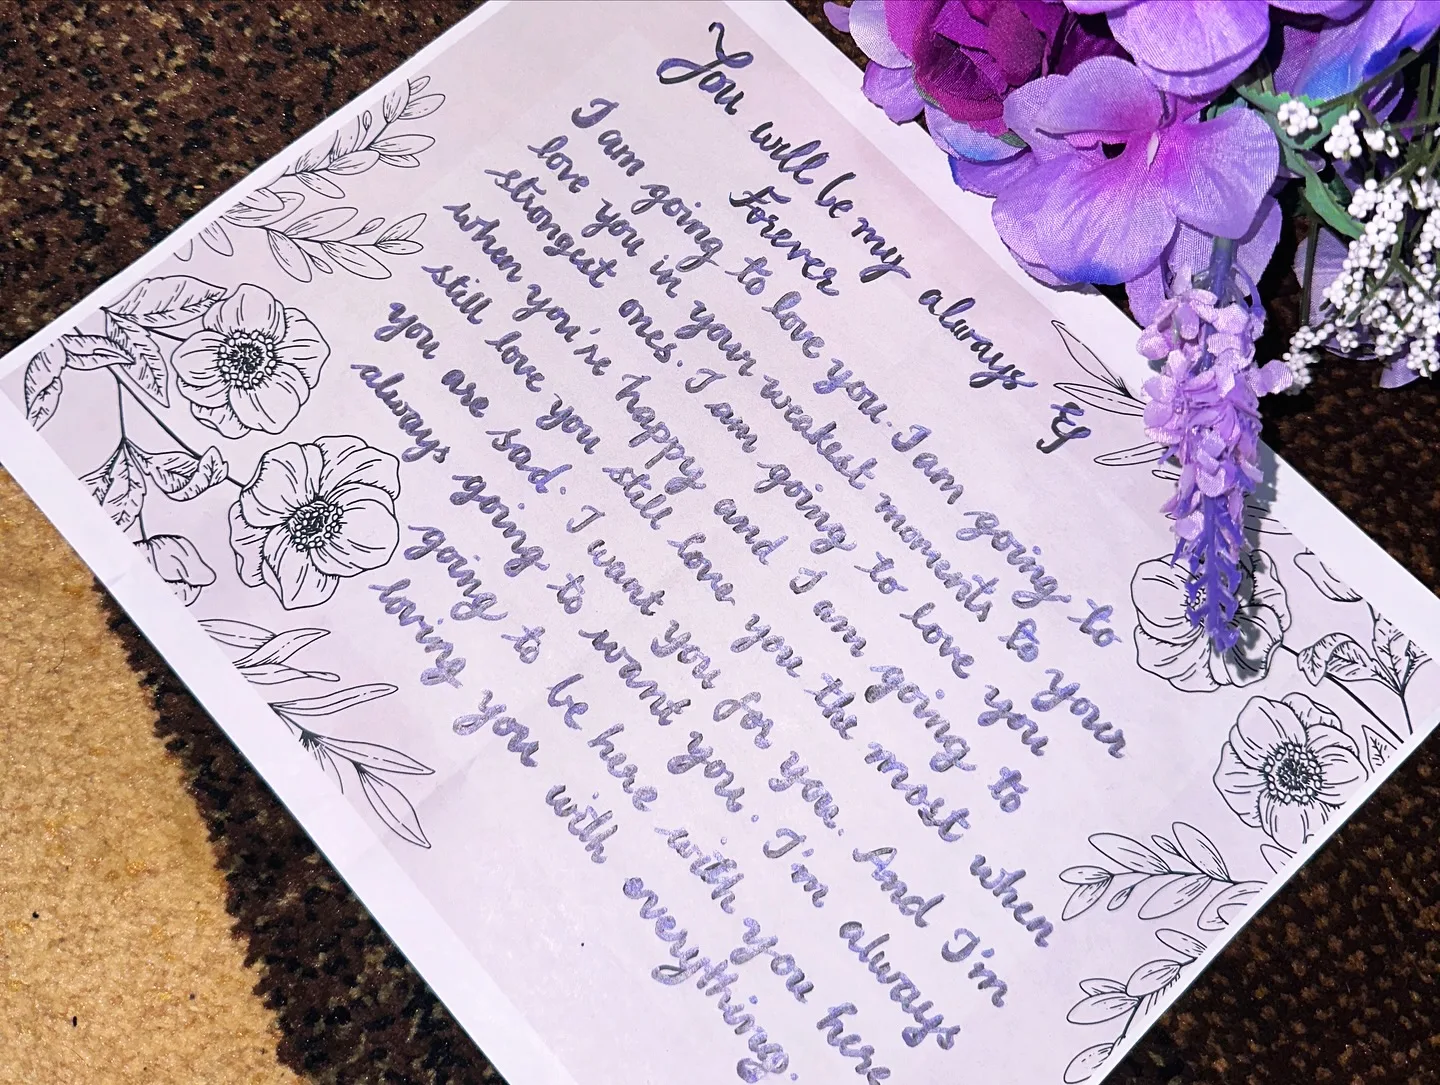 You will be my always &
Forever
I am going to love you. I am going to
love you in your weakest moments to your
strongest ones. I am going to love you
when you're happy and I am going to
still love you still love you the most when
you are sad. I want you for you. And I'm
always going to want you. I'm always
going to be here with you here
loving you with everything.